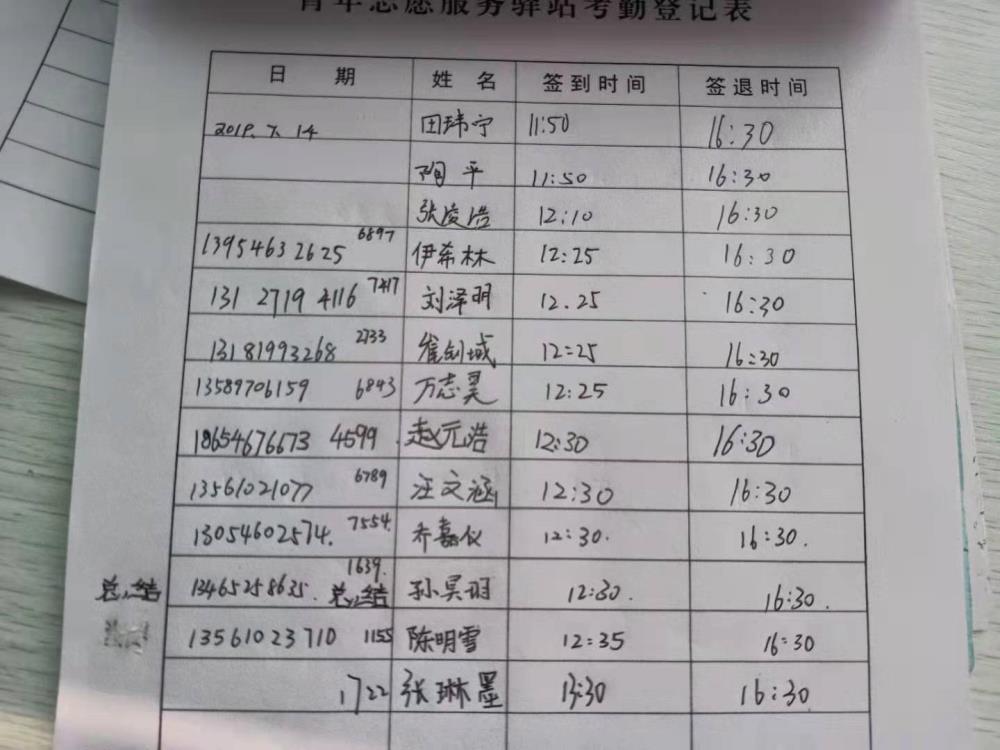 青年志愿服务驿站考勤登记表
日 期 姓 名 签到时间 签退时间
2019.7.14 田玮宁 11:50 16:30
陶平 11:50 16:30
张凌浩 12:10 16:30
13954632625 6897 伊希林 12:25 16:30
131 2719 4116 7417 刘泽明 12.25 16:30
13181993268 2733 崔创城 12:25 16:30
13589706159 6843 万志昊 12:25 16:30
18654676573 4599 赵元浩 12:30 16:30
13561021077 6789 汪文涵 12:30 16:30
13054602574. 7554. 乔嘉仪 12:30. 16:30.
总结 13465258635. 1639. 总结 孙昊玥 12:30. 16:30.
13561023710 1155 陈明雪 12:35 16:30
1722 张琳墨 13:30 16:30